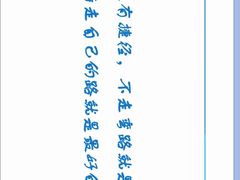 有捷径，不走弯路就是
走自己的路就是最好